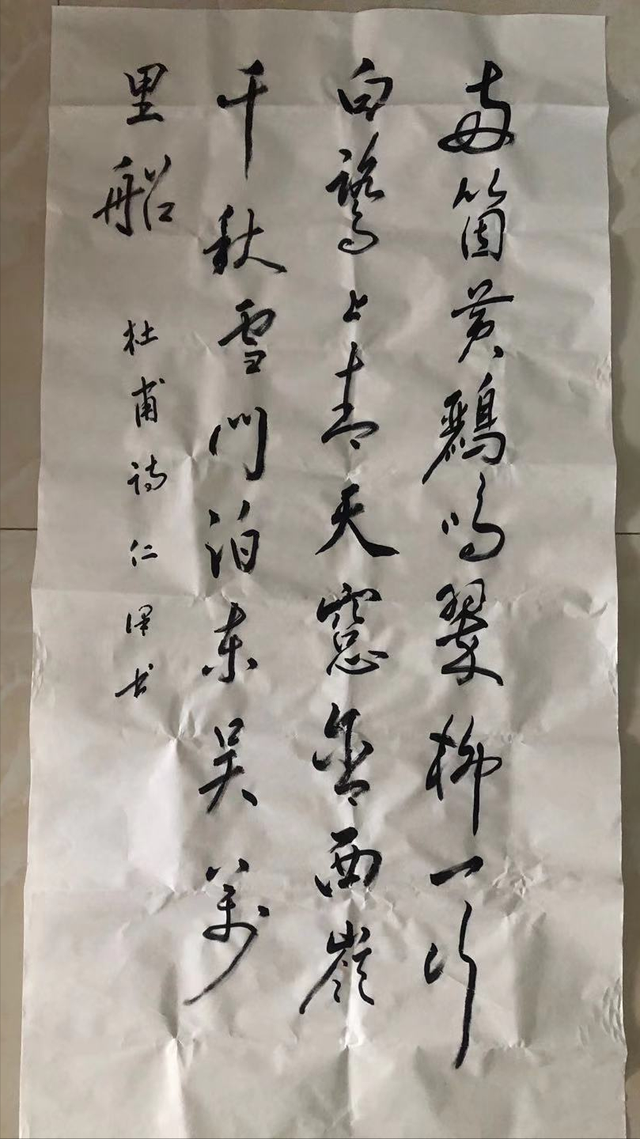 两箇黄鸝鸣翠柳一行
白鹭上青天窓含西岭
千秋雪门泊东吴万
里船
杜甫诗仁泽书